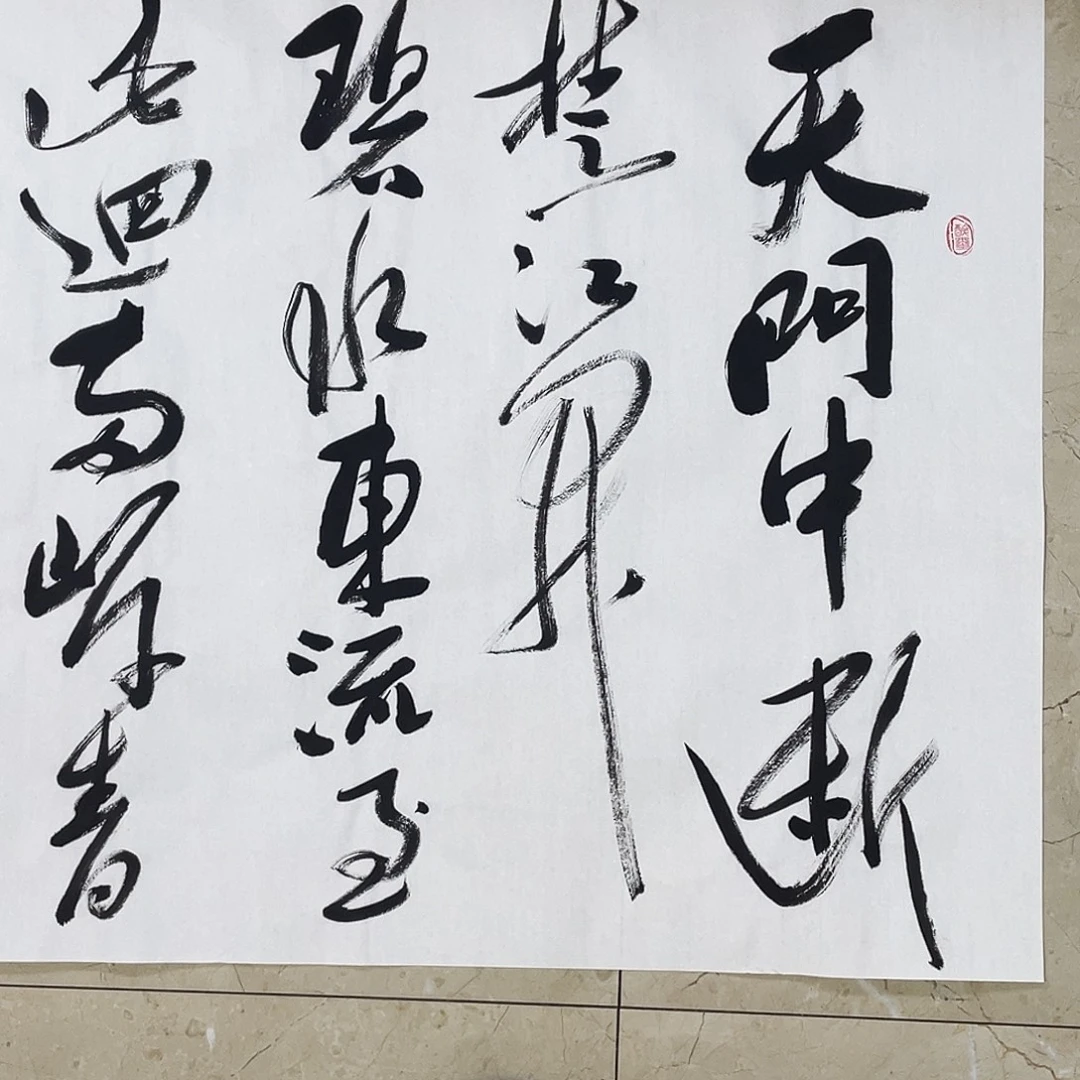 天門中斷
楚江開
碧水東流至
此迴兩岸青